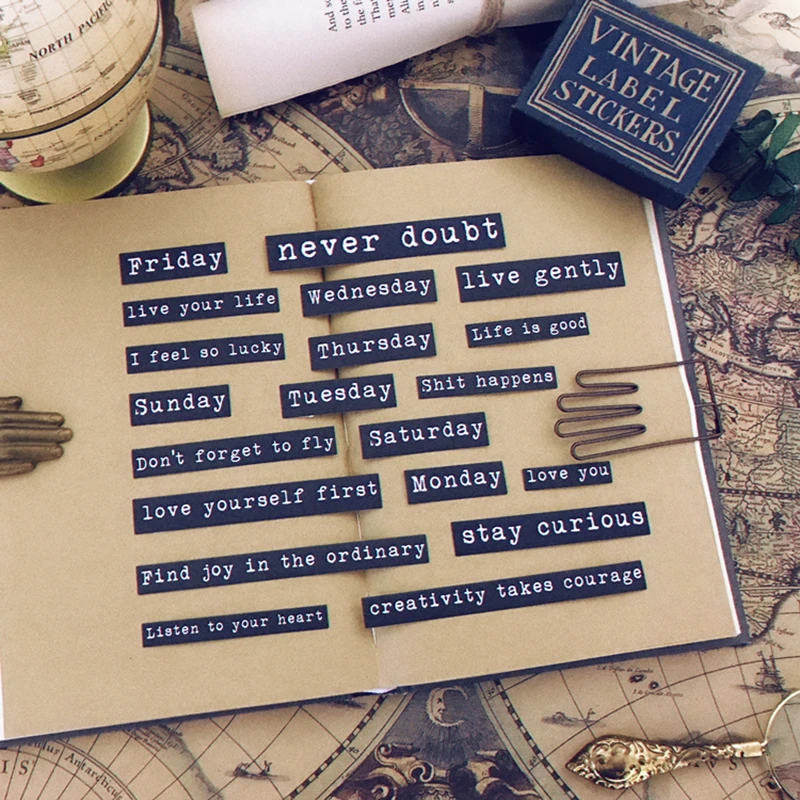 NORTH PACIFIC
And so
to the
the f
That
me
Ali
in
VINTAGE
LABEL
STICKERS.
Friday
never doubt
live your life
Wednesday
live gently
I feel so lucky
Thursday
Life is good
Sunday
Tuesday
Shit happens
Don't forget to fly
Saturday
love yourself first
Monday
love you
Find joy in the ordinary
stay curious
Listen to your heart
creativity takes courage